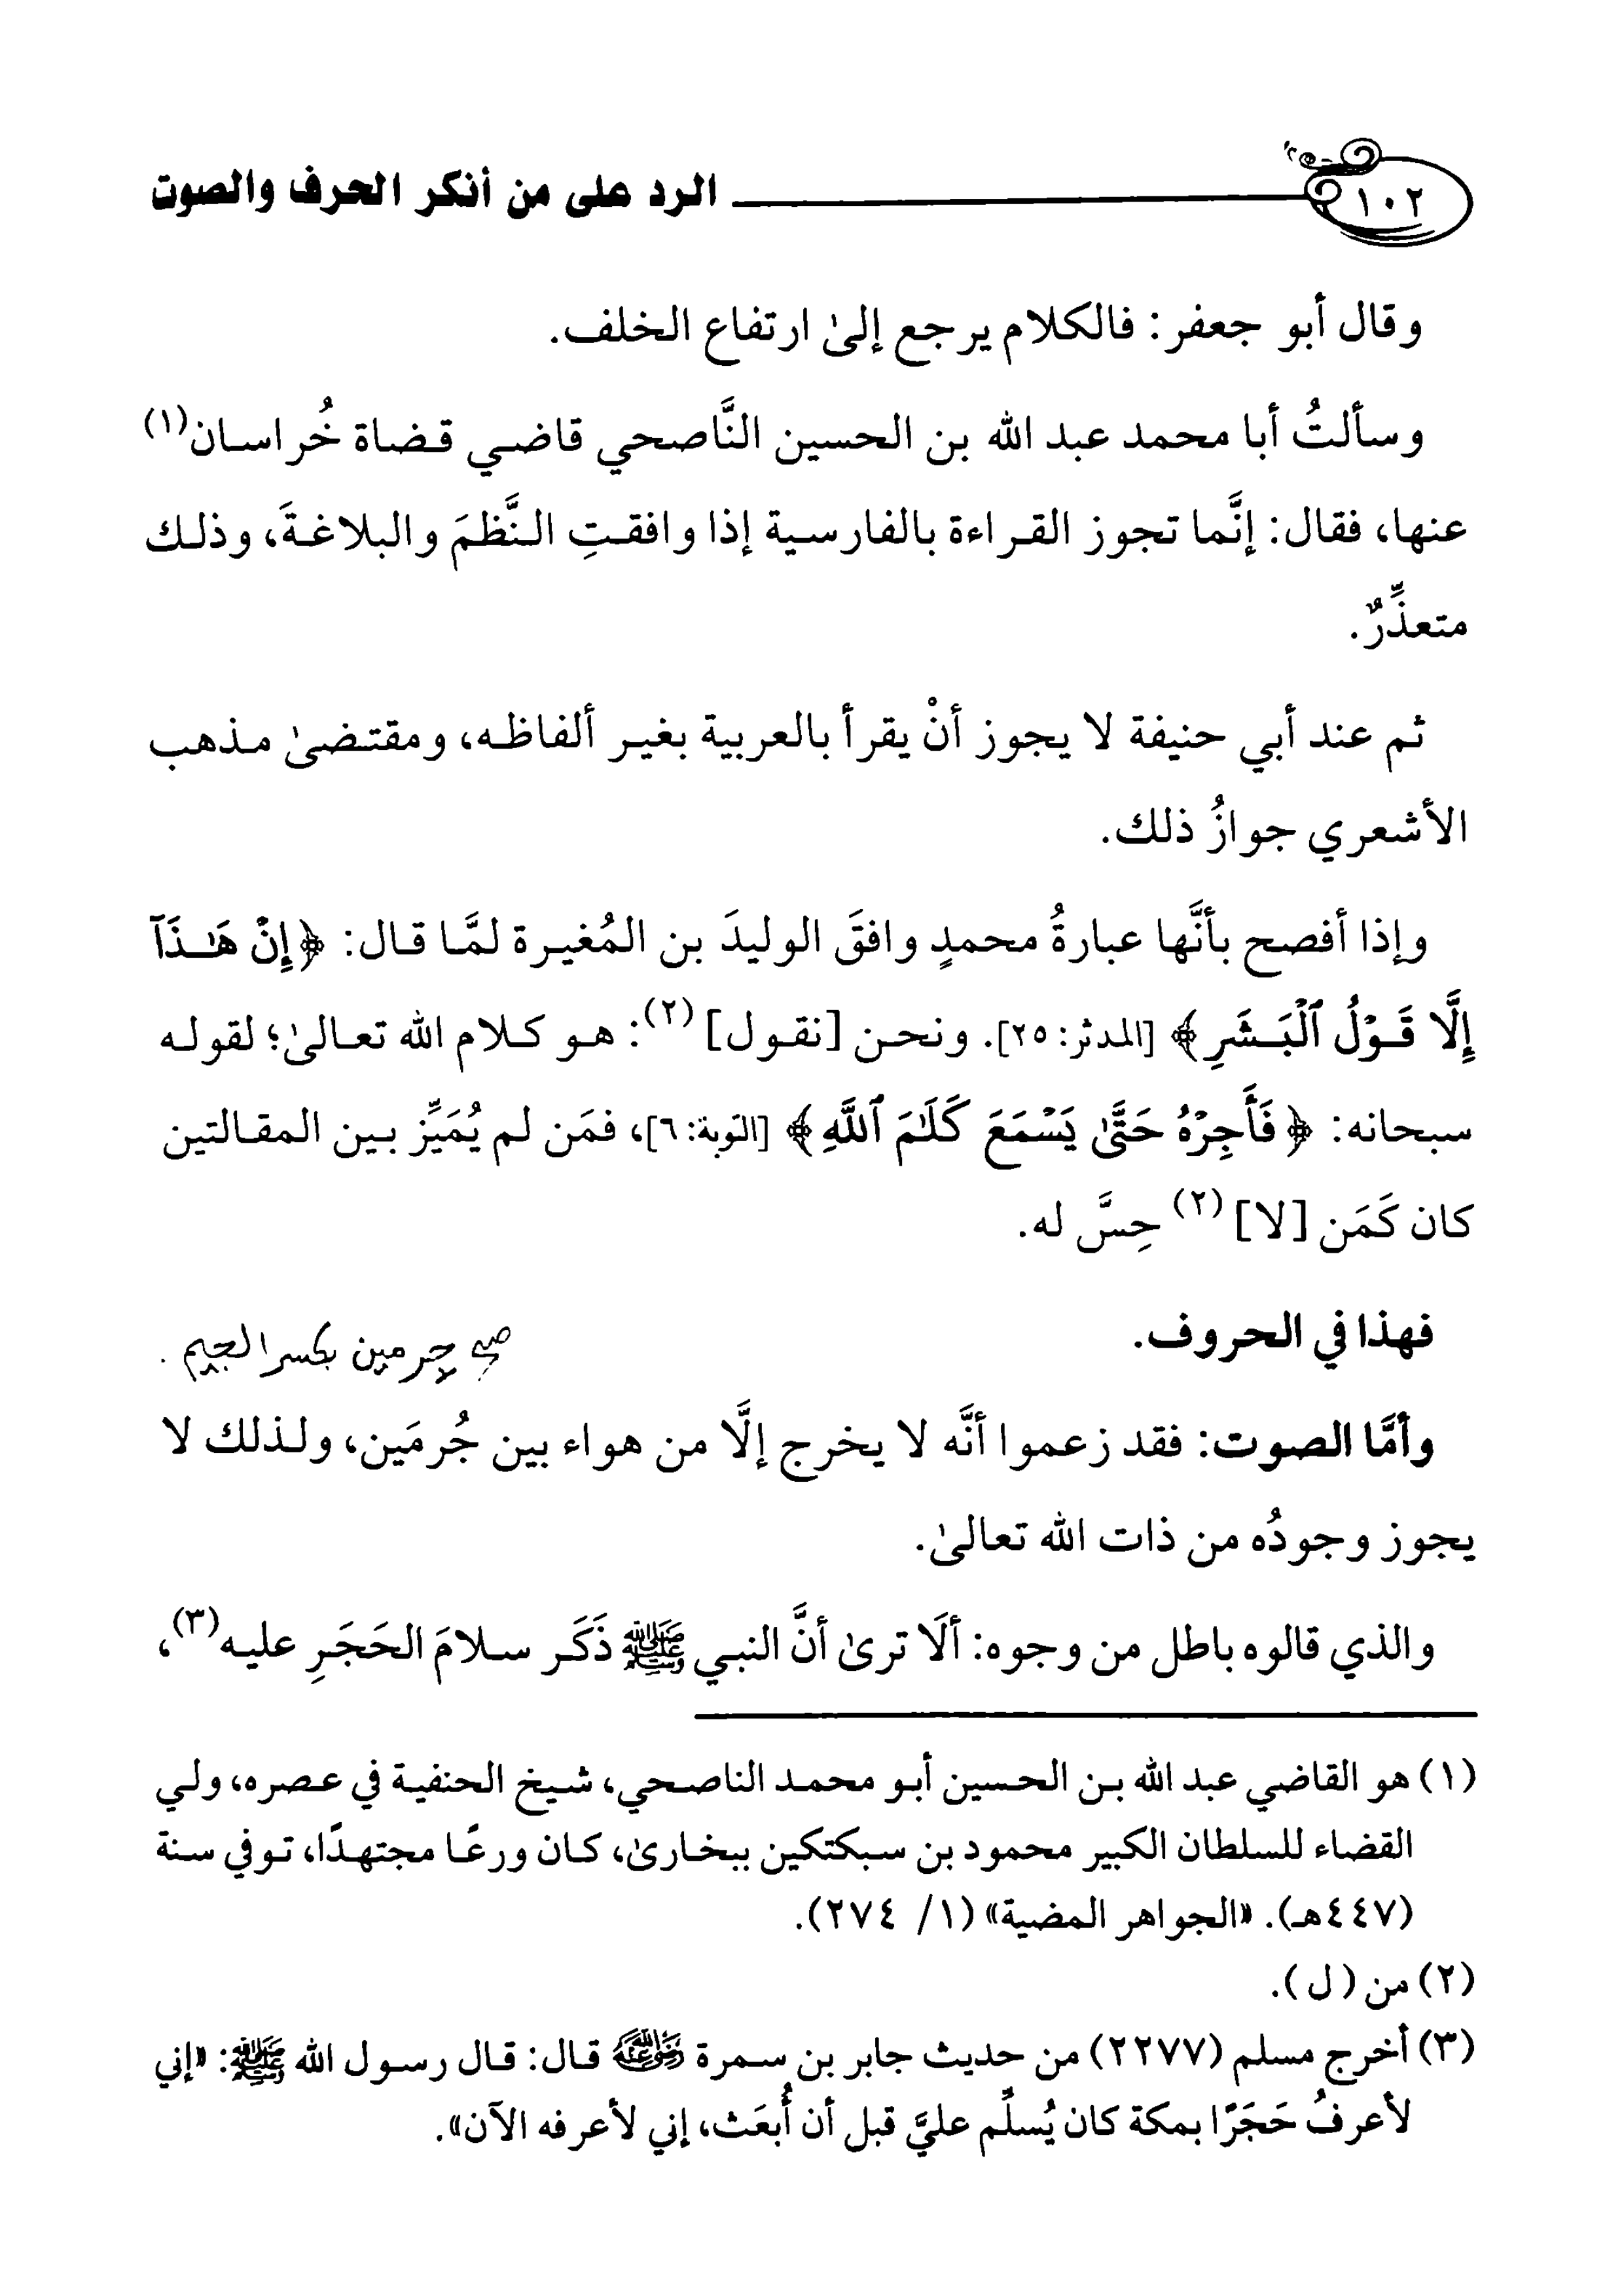 ١٠٢ الرد على من أنكر الحرف والصوت
وقال أبو جعفر: فالكلام يرجع إلىٰ ارتفاع الخلف.
وسألتُ أبا محمد عبد الله بن الحسين النَّاصحي قاضي قضاة خُراسان(١)
عنها، فقال: إنَّما تجوز القراءة بالفارسية إذا وافقتِ النَّظمَ والبلاغةَ، وذلك
متعذِّرٌ.
ثم عند أبي حنيفة لا يجوز أنْ يقرأ بالعربية بغير ألفاظه، ومقتضىٰ مذهب
الأشعري جوازُ ذلك.
وإذا أفصح بأنَّها عبارةُ محمدٍ وافقَ الوليدَ بن المُغيرة لمَّا قال: ﴿إِنْ هَـٰذَآ
إِلَّا قَوْلُ ٱلْبَشَرِ﴾ [المدثر: ٢٥]. ونحن [نقول](٢): هو كلام الله تعالىٰ؛ لقوله
سبحانه: ﴿فَأَجِرْهُ حَتَّىٰ يَسْمَعَ كَلَٰمَ ٱللَّهِ﴾ [التوبة: ٦]، فمَن لم يُمَيِّز بين المقالتين
كان كَمَن [لا](٢) حِسَّ له.
فهذا في الحروف.
صح جِرمين بكسر الجيم .
وأمَّا الصوت: فقد زعموا أنَّه لا يخرج إلَّا من هواء بين جُرمَين، ولذلك لا
يجوز وجودُه من ذات الله تعالىٰ.
والذي قالوه باطل من وجوه: ألَا ترىٰ أنَّ النبي ﷺ ذَكَر سلامَ الحَجَرِ عليه(٣)،
(١) هو القاضي عبد الله بن الحسين أبو محمد الناصحي، شيخ الحنفية في عصره، ولي
القضاء للسلطان الكبير محمود بن سبكتكين ببخارىٰ، كان ورعًا مجتهدًا، توفي سنة
(٤٤٧هـ). «الجواهر المضية» (١/ ٢٧٤).
(٢) من (ل).
(٣) أخرج مسلم (٢٢٧٧) من حديث جابر بن سمرة رضي الله عنه قال: قال رسول الله ﷺ: «إني
لأعرفُ حَجَرًا بمكة كان يُسلِّم عليَّ قبل أن أُبعَث، إني لأعرفه الآن».